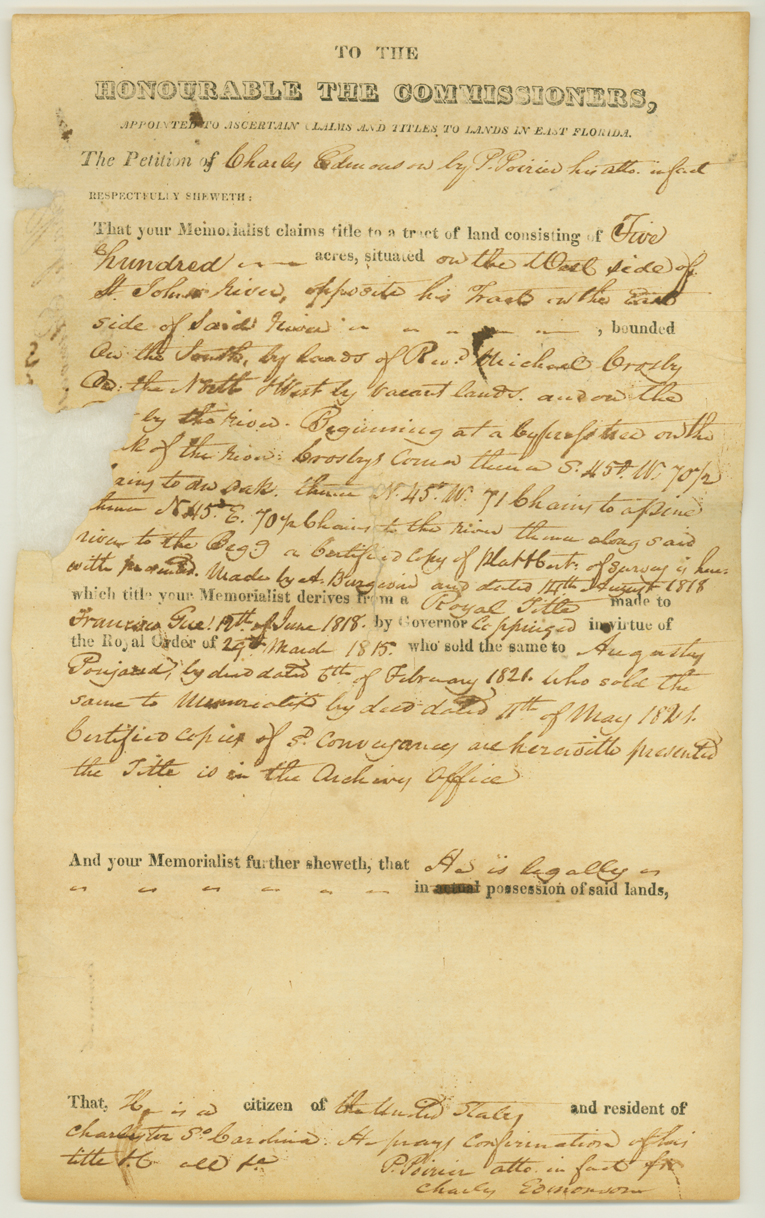 TO THE
HONOURABLE THE COMMISSIONERS,
APPOINTED TO ASCERTAIN CLAIMS AND TITLES TO LANDS IN EAST FLORIDA.
The Petition of Charles Edmonson by P. Poirier his atto. in fact
RESPECTFULLY SHEWETH:
That your Memorialist claims title to a tract of land consisting of Five
hundred acres, situated on the West side of
St. Johns River, opposite his Tract on the East
side of said River , bounded
On the South, by lands of Rd. Michael Crosby
On the North & West by vacant lands. and on the
by the river. Beginning at a Cypress tree on the
of the river: Crosbys Corner thence S. 45d. W. 70½
ains to an oak. thence N. 45d. W. 71 Chains to a pine
thence N 45d. E. 70½ Chains to the river thence along said
river to the Begg a Certified copy of Plat & Cert. of survey is here-
with presented. Made by A. Burgevin and dated 14th August 1818
which title your Memorialist derives from a Royal Title made to
Francisco Gué 12th of June 1818. by Governor Coppinger in virtue of
the Royal Order of 29th March 1815. who sold the same to Augustus
Poujaud, by deed dated 6th of February 1821. who sold the
same to Memorialist by deed dated 11th of May 1821.
Certified copies of sd. conveyances are herewith presented
the Title is in the Archives Office
And your Memorialist further sheweth, that He is legally
in actual possession of said lands,
That, He is a citizen of the United States and resident of
Charleston So Carolina. He prays confirmation of his
title &c all &c P. Poirier atto. in fact for
Charles Edmonson